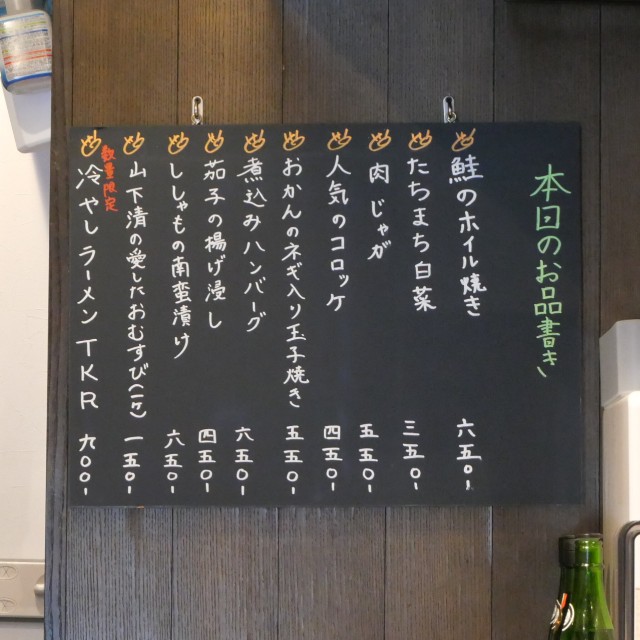 本日のお品書き
鮭のホイル焼き 六五〇-
たちまち白菜 三五〇-
肉じゃが 五五〇-
人気のコロッケ 四五〇-
おかんのネギ入り玉子焼き 五五〇-
煮込みハンバーグ 六五〇-
茄子の揚げ浸し 四五〇-
ししゃもの南蛮漬け 六五〇-
山下清の愛したおむすび(一ヶ) 一五〇-
数量限定
冷やしラーメンTKR 九〇〇-